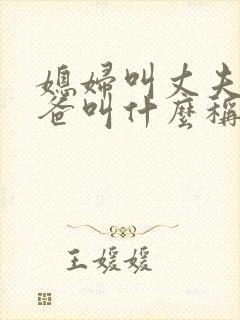 媳婦叫丈夫
爸叫什麼稱
王媛媛